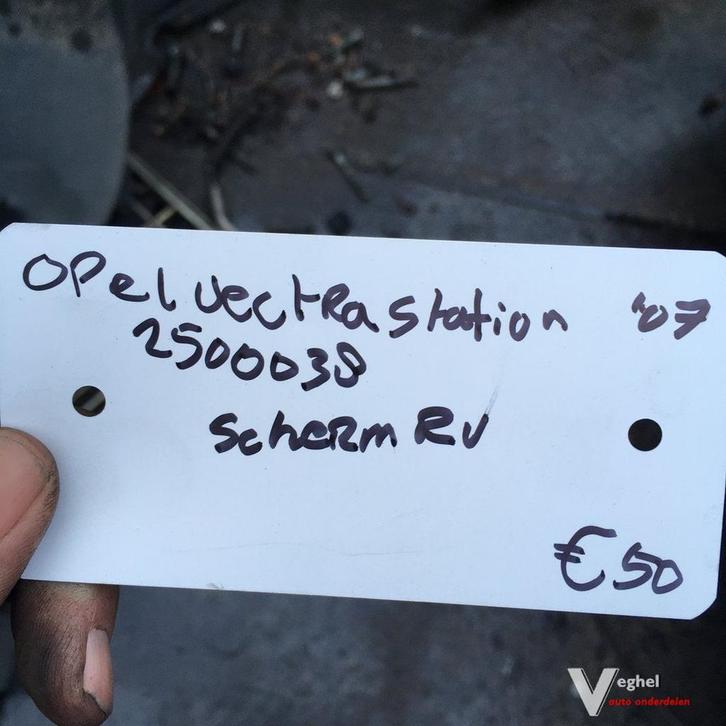 Opel vectra station '07
2500038
scherm RV
€50
Veghel
auto onderdelen